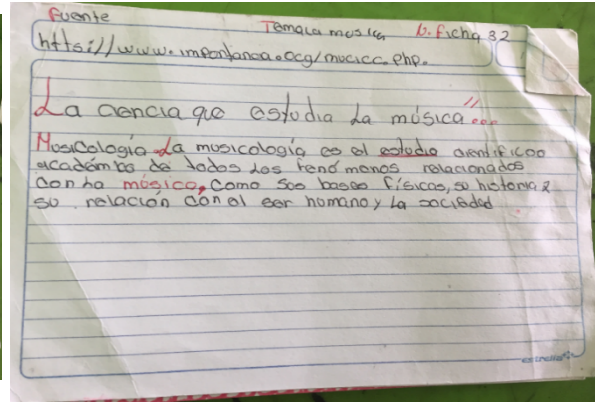 Fuente Tema La musica N. ficha 32
https://www.importancia.org/mucicc.php.
La ciencia que estudia La música"...
Musicología La musicología es el estudio cientifico o
académico de todos Los fenómenos relacionados
con La música, como sus bases físicas, su historia y
su relación con el ser humano y La sociedad
estrella